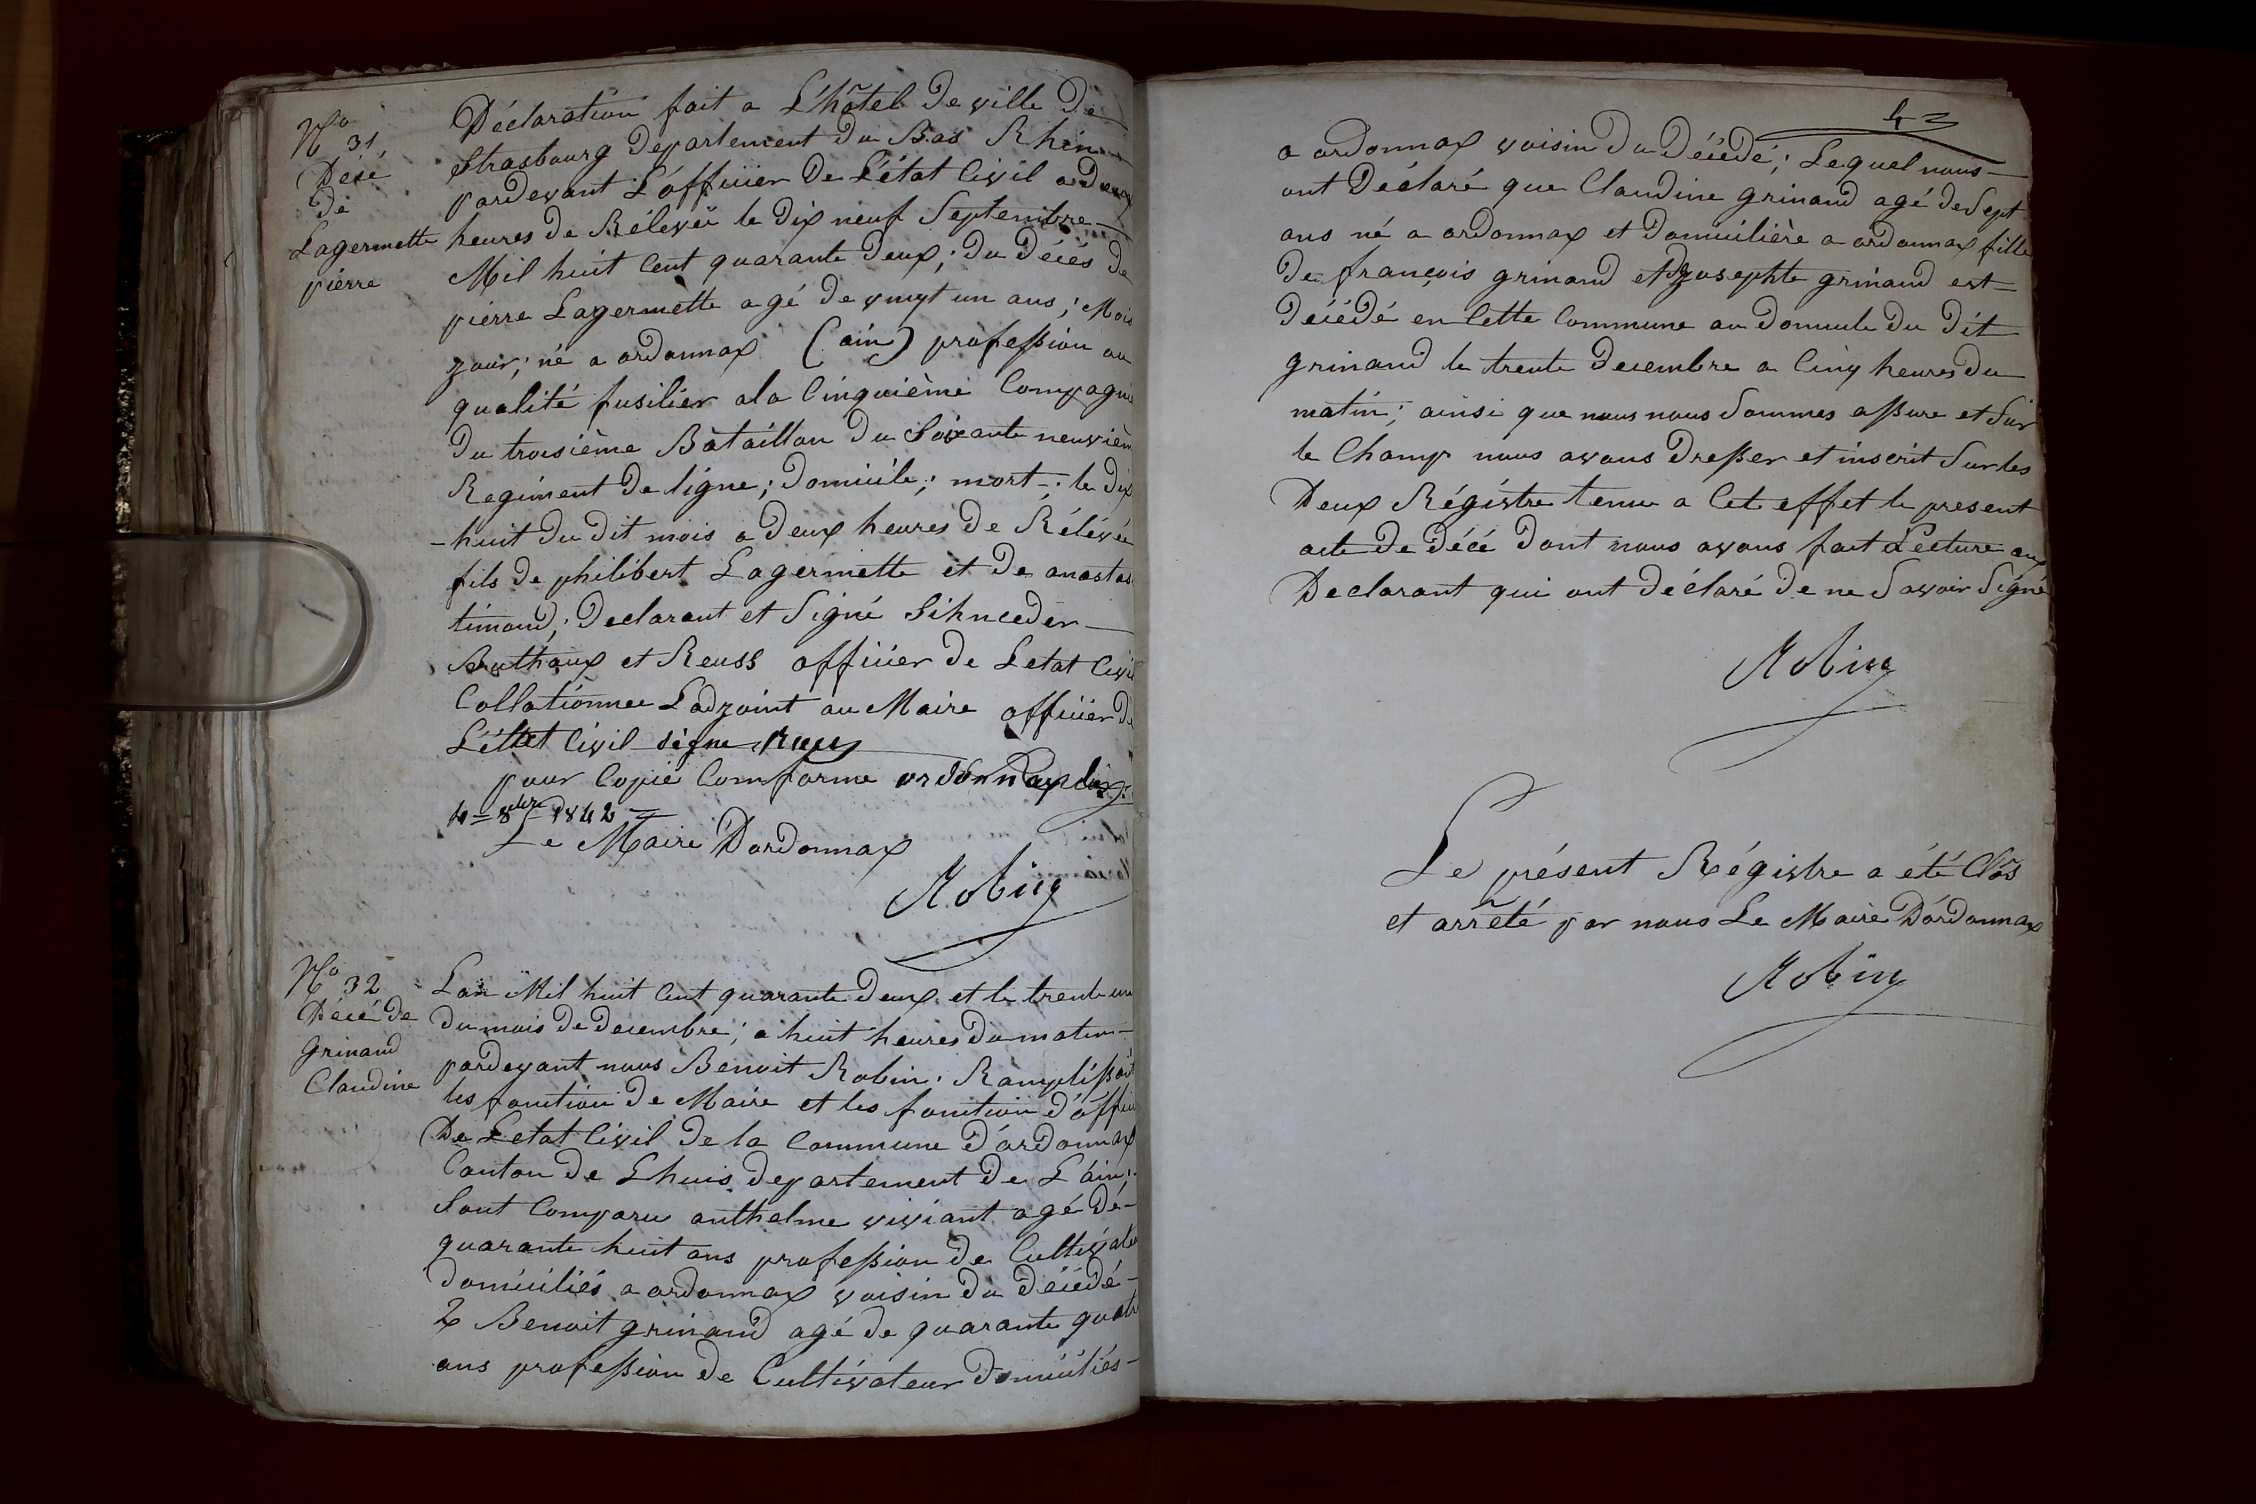 No 31,
Décé
de
Lagermette
pierre
Déclaration fait a L'hôtel De ville De
Strasbourg Departement Du Bas Rhin
pardevant L'officier De L'état Civil a deux
heures De Rélevée le Dix neuf Septembre
Mil huit Cent quarante Deux; Du Décés De
pierre Lagermette agé De vingt un ans; Mois
jour; né a ordonnax (ain) profession ou
qualité fusilier a la Cinquième Compagnie
Du troisième Bataillon Du Soixante neuvièm
Regiment De ligne; Domicile; mort; le Dix
-huit Du Dit mois a Deux heures De Rélévée
fils De philibert Lagermette et De anastas
timand; Declarant et Signé Sihneeder
Buthaux et Reuss officier De Letat Civil
Collationnee Ladjoint au Maire officier De
L'éttat Civil signe
pour Copie Comforme ordonnax
4 8bre 1842
Le Maire D'ordonnax
Robin
No 32
Décé De
Grinand
Claudine
Lan Mil huit Cent quarante Deux et le trente un
Du mois De Decembre; a huit heures Du matin
pardevant nous Benoit Robin. Ramplissant
les fonction De Maire et les fonction D'offici
De Letat Civil De la Commune D'ordonnax
Canton De Lhuis Departement De L'ain;
Sont Comparu anthelme viviant agé De
quarante huit ans profession De Cultivateu
Domiciliés a ordonnax voisin Du Décédé
2 Benoit grinand agé De quarante quatr
ans profession De Cultivateur Domiciliés
43
a ordonnax voisin Du Décédé; Lequel nous
ont Déclaré que Claudine grinand agé De Sept
ans né a ordonnax et Domicilière a ordonnax fille
De françois grinand et josephte grinand est
Décédé en Cette Commune au Domicile Du Dit
grinand le trente Decembre a Cinq heures Du
matin; ainsi que nous nous Sommes assure et Sur
le Champ nous avons Dresser et inscrit Sur les
Deux Régistre tenu a Cet effet le present
acte De Décé Dont nous avons fait Lecture aux
Declarant qui ont Déclaré De ne Savoir Signé
Robin
Le présent Régistre a été Clos
et arrêté par nous Le Maire D'ordonnax
Robin